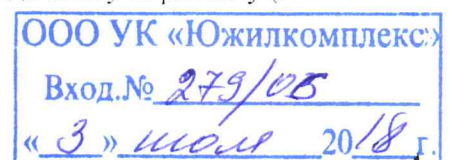 ООО УК «Южилкомплекс»
Вход.№ 279/06
« 3 » июля 2018 г.